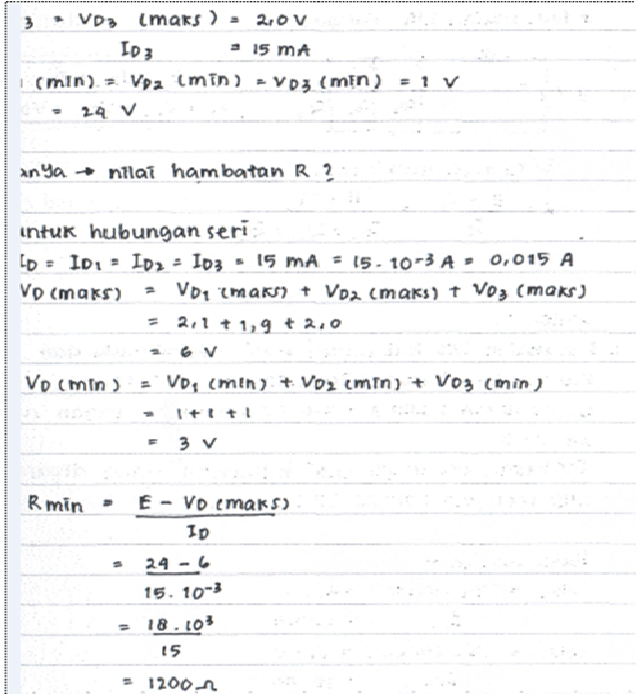 3 = VD3 (maks) = 2,0 V
ID3 = 15 mA
(min) = VD2 (min) = VD3 (min) = 1 V
= 24 V
anya → nilai hambatan R ?
untuk hubungan seri:
ID = ID1 = ID2 = ID3 = 15 mA = 15. 10-3 A = 0,015 A
VD (maks) = VD1 (maks) + VD2 (maks) + VD3 (maks)
= 2,1 + 1,9 + 2,0
= 6 V
VD (min) = VD1 (min) + VD2 (min) + VD3 (min)
= 1 + 1 + 1
= 3 V
R min = E - VD (maks)
ID
= 24 - 6
15. 10-3
= 18 . 10³
15
= 1200 Ω